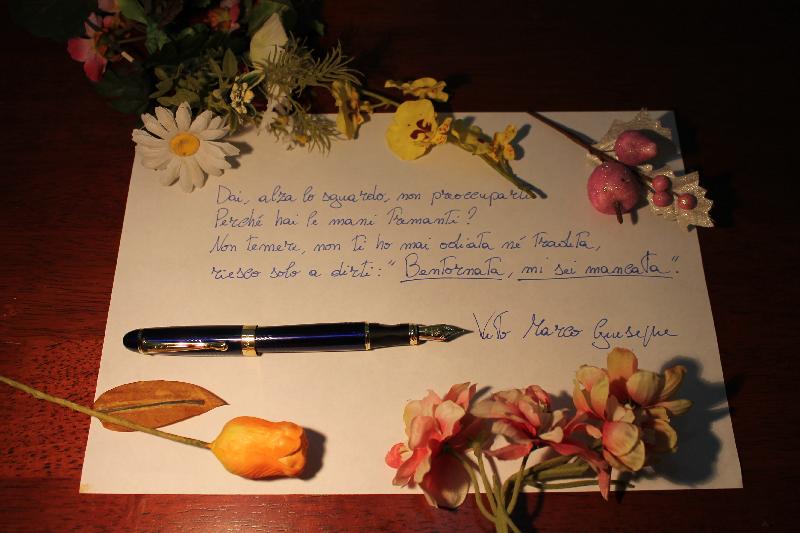 Dai, alza lo sguardo, non preoccuparti.
Perché hai le mani tremanti?
Non temere, non ti ho mai odiata né tradita,
riesco solo a dirti: "Bentornata, mi sei mancata".
Vito Marco Giuseppe